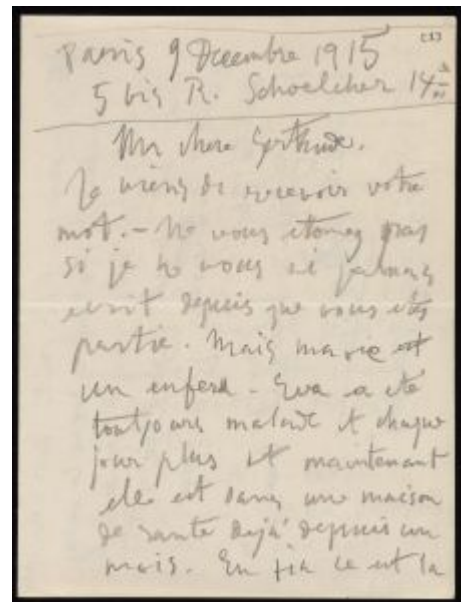 Paris 9 Decembre 1915
5 bis R. Schoelcher 14
Ma chere Gertrude.
Je viens de recevoir votre
mot. – Ne vous etonez pas
si je ne vous ai jamais
ecrit depuis que vous ets
partie. Mais ma vie est
un enfera – Eva a eté
toutjours malade et chaque
jour plus et maintenant
elle est dans une maison
de santé dejá depuis un
mois. En fin ce est la